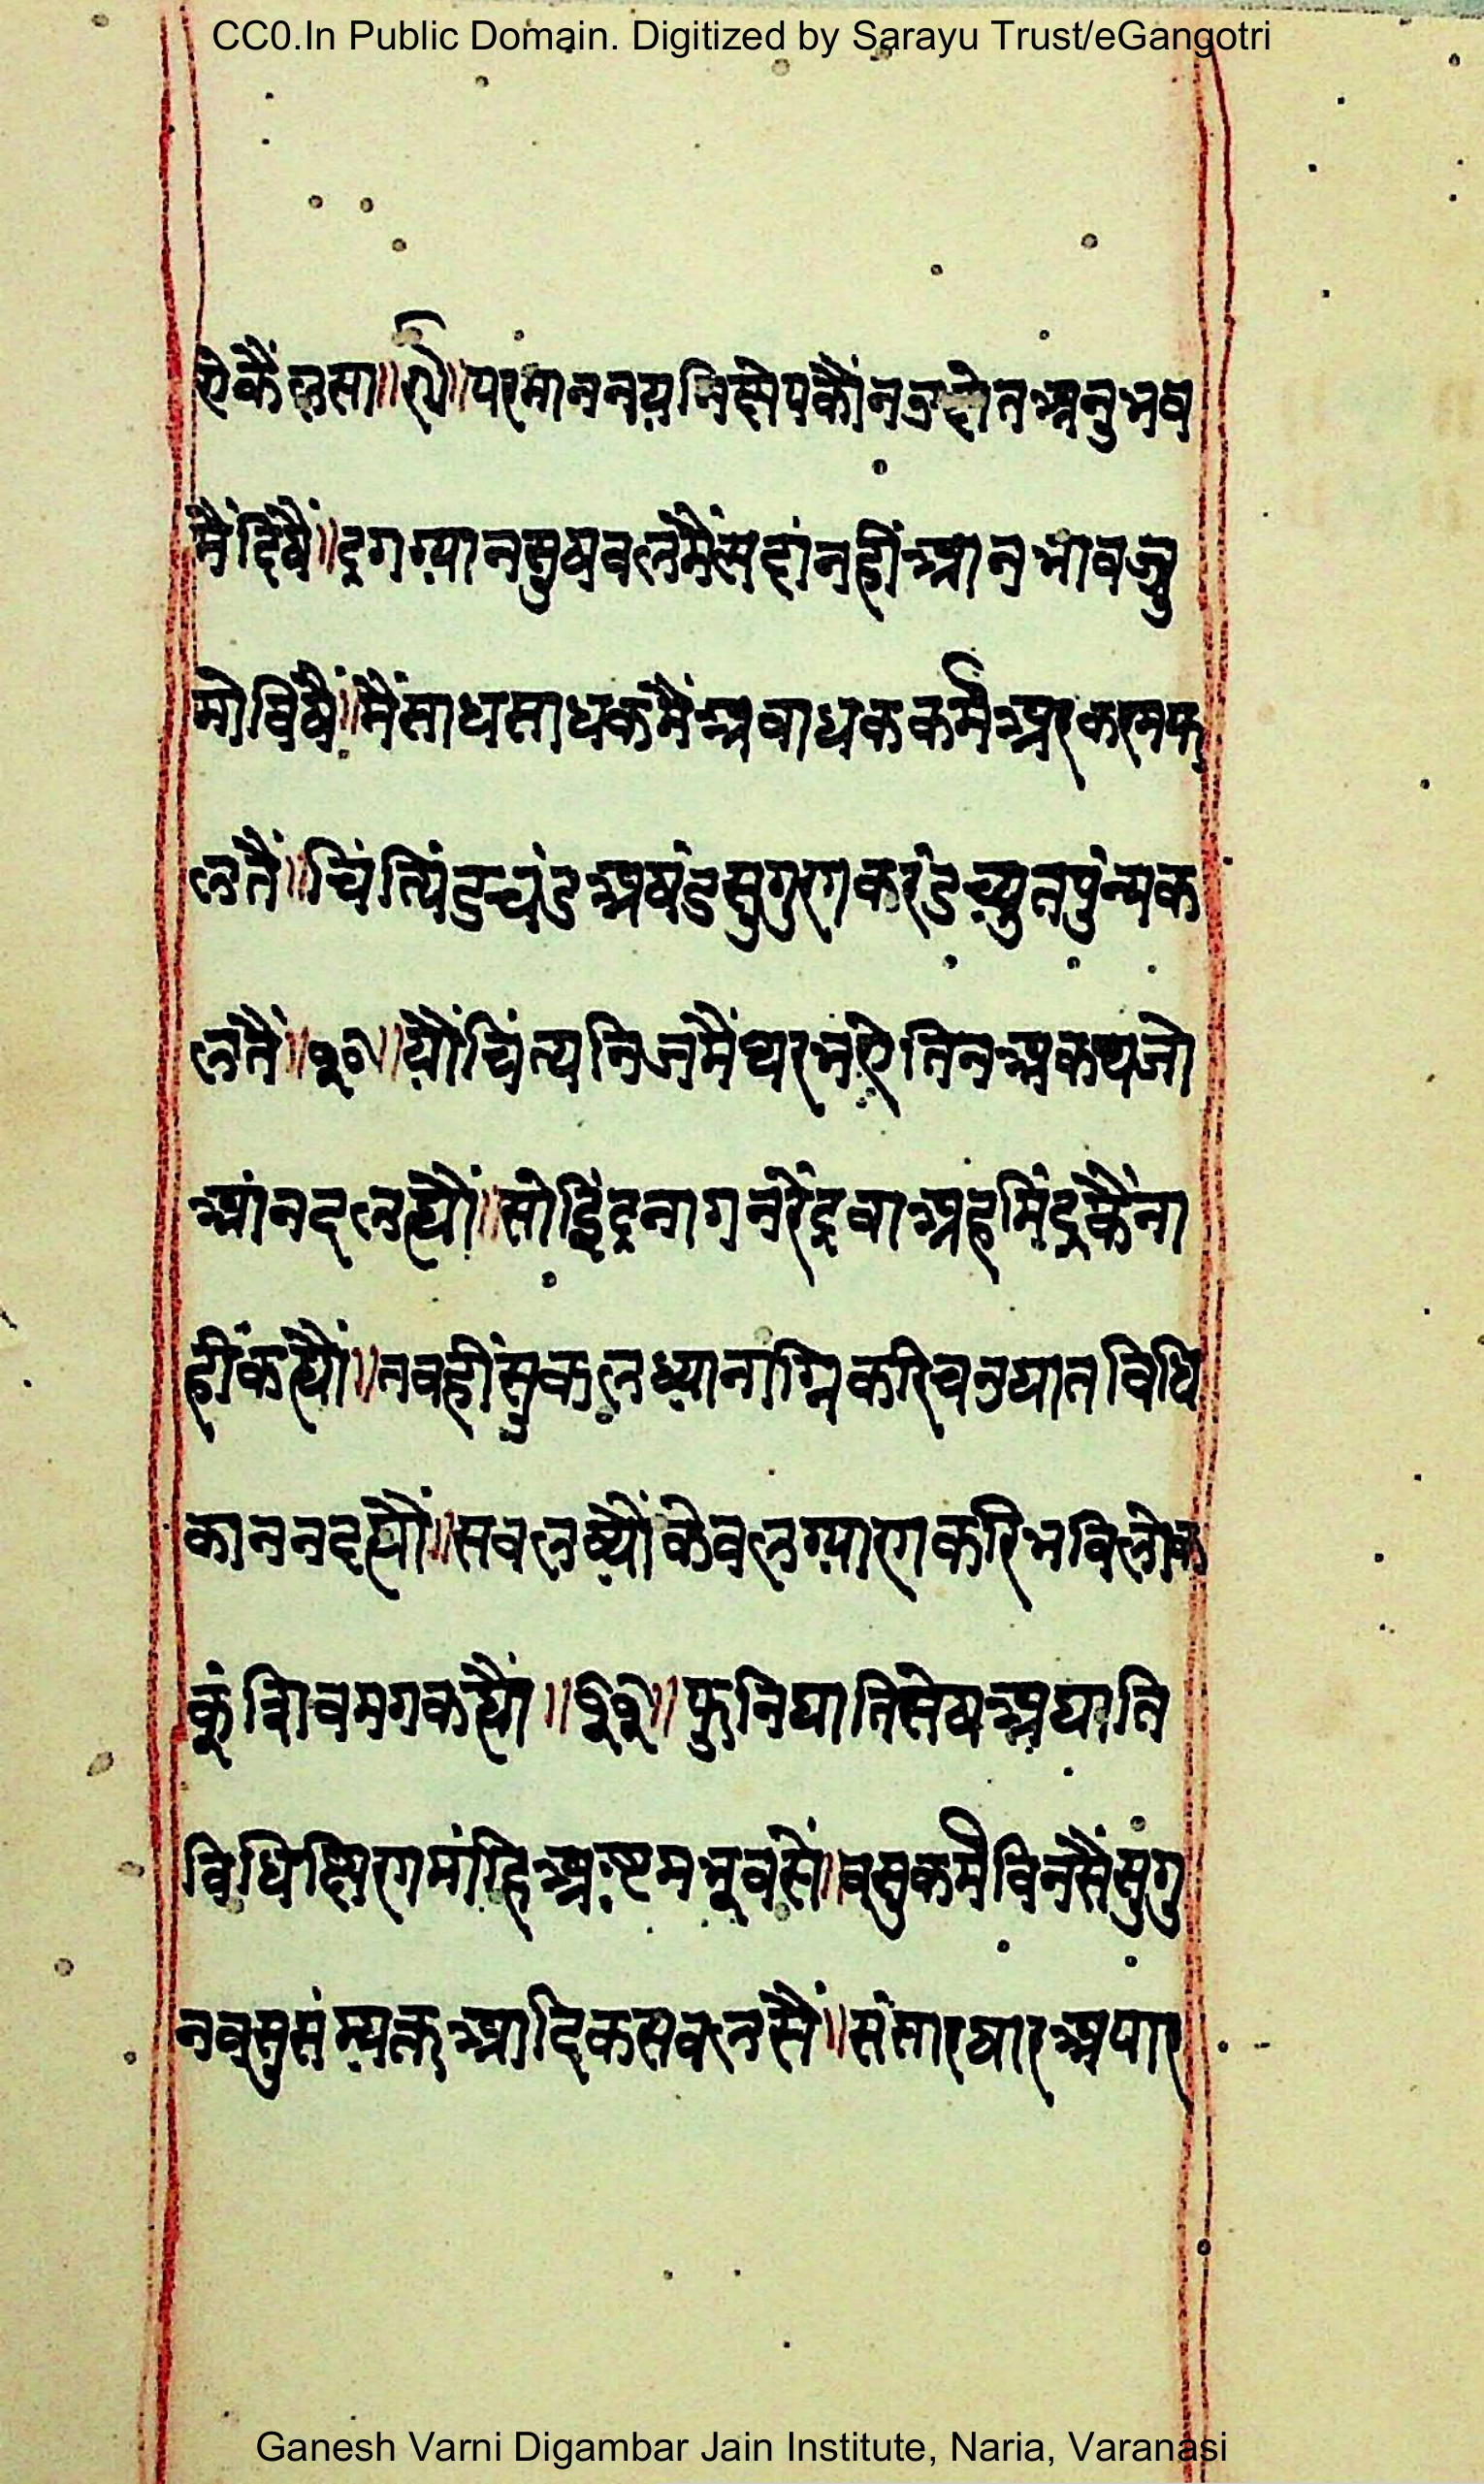 CC0.In Public Domain. Digitized by Sarayu Trust/eGangotri
ऐकैं लसा॥ ॥परमाननयनिक्षेपकौंनउद्दोतअनुभव
मैंदिषैं॥दृगग्यानसुषबलंमैंसदांनहींआनभावजु
मोविंषैं॥मैंसाधसाधकमैंअबाधककर्मअरकरमफ
लतैं॥चिंत्पिंडचंडअषंडसुगुणकरंडच्युतपुंन्यक
लतैं॥१०॥यौंचिंत्यनिजमैंथरभऐतिनअकथजो
आंनदलत्यौं॥सोइिंद्रनागनरेंद्रवाअहमिंद्रकैंना
हींकत्यौं॥तबहींसुकलध्यानाग्निकरिचउघातविधि
काननदत्यौं॥सबलष्यौंकेवलग्याणकरिभविलोक
कूंशिवमगकत्यौं॥११॥फुनिघातिसेषअघाति
विधिक्षिणमांहिअष्टमभूवसें॥वसुकर्मविनसैंसुगु
नवसुसंम्यक्तआदिकसबलसैं॥संसारषारअपार
Ganesh Varni Digambar Jain Institute, Naria, Varanasi